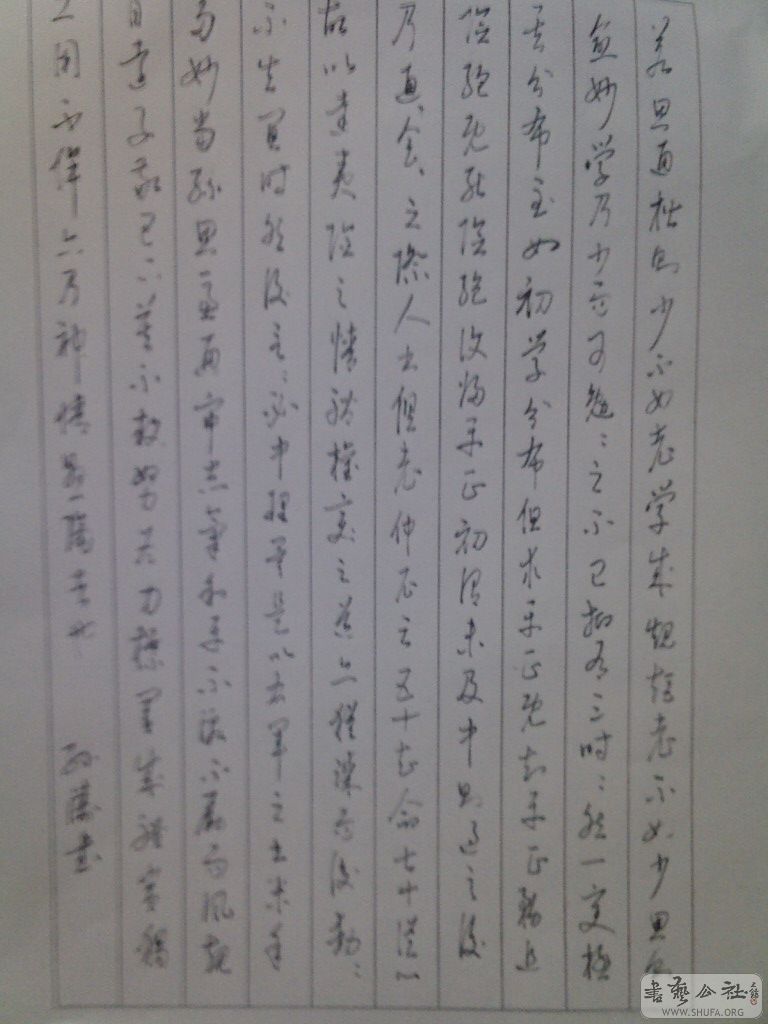 若思通楷则少不如老学成规矩老不如少思则
愈妙学乃少而可勉〻之不已抑有三时〻然一变极
其分布至如初学分布但求平正既知平正务追
险绝既能险绝复归平正初谓未及中则过之后
乃通〻会〻之际人书俱老仲尼云五十知命七十从心
故以达夷险之情体权变之道亦犹谋而后动〻
不失宜时然后言〻必中理矣是以右军之书末年
多妙当缘思虑通审志气和平不激不厉而风规
自远子敬已下莫不鼓努为力标置成体岂独
工用不侔亦乃神情悬隔者也
書藝公社
WWW.SHUFA.ORG